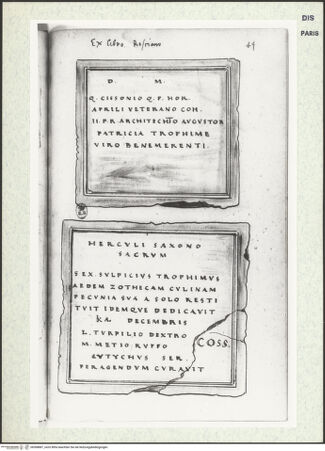 DIS
PARIS
Ex libro
49
D. M.
Q. CISSONIO Q. F. HOR.
APRILI VETERANO COH.
II. P. R. ARCHITECHTO AVGVSTOR
PATRICIA TROPHIME
VIRO BENEMERENTI.
HERCULI SAXONO
SACRVM
SEX. SVLPICIVS TROPHIMUS
AEDEM ZOTHECAM CVLINAM
PECVNIA SVA A SOLO RESTI
TVIT IDEMQVE DEDICAVIT
KA DECEMBRIS
L. TVRPILIO DEXTRO
M. METIO RVFFO
COSS.
EVTYCHVS SER.
PERAGENDVM CVRAVIT